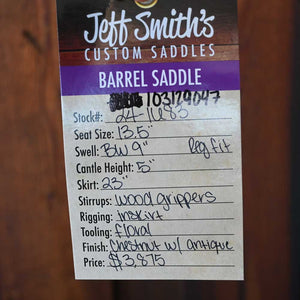 Jeff Smith's
CUSTOM SADDLES
BARREL SADDLE
103129047
Stock#: 24 1683
Seat Size: 13.5"
Swell: BW 9" Reg fit
Cantle Height: 5"
Skirt: 23"
Stirrups: wood grippers
Rigging: inskirt
Tooling: floral
Finish: Chestnut w/ antique
Price: $3,875